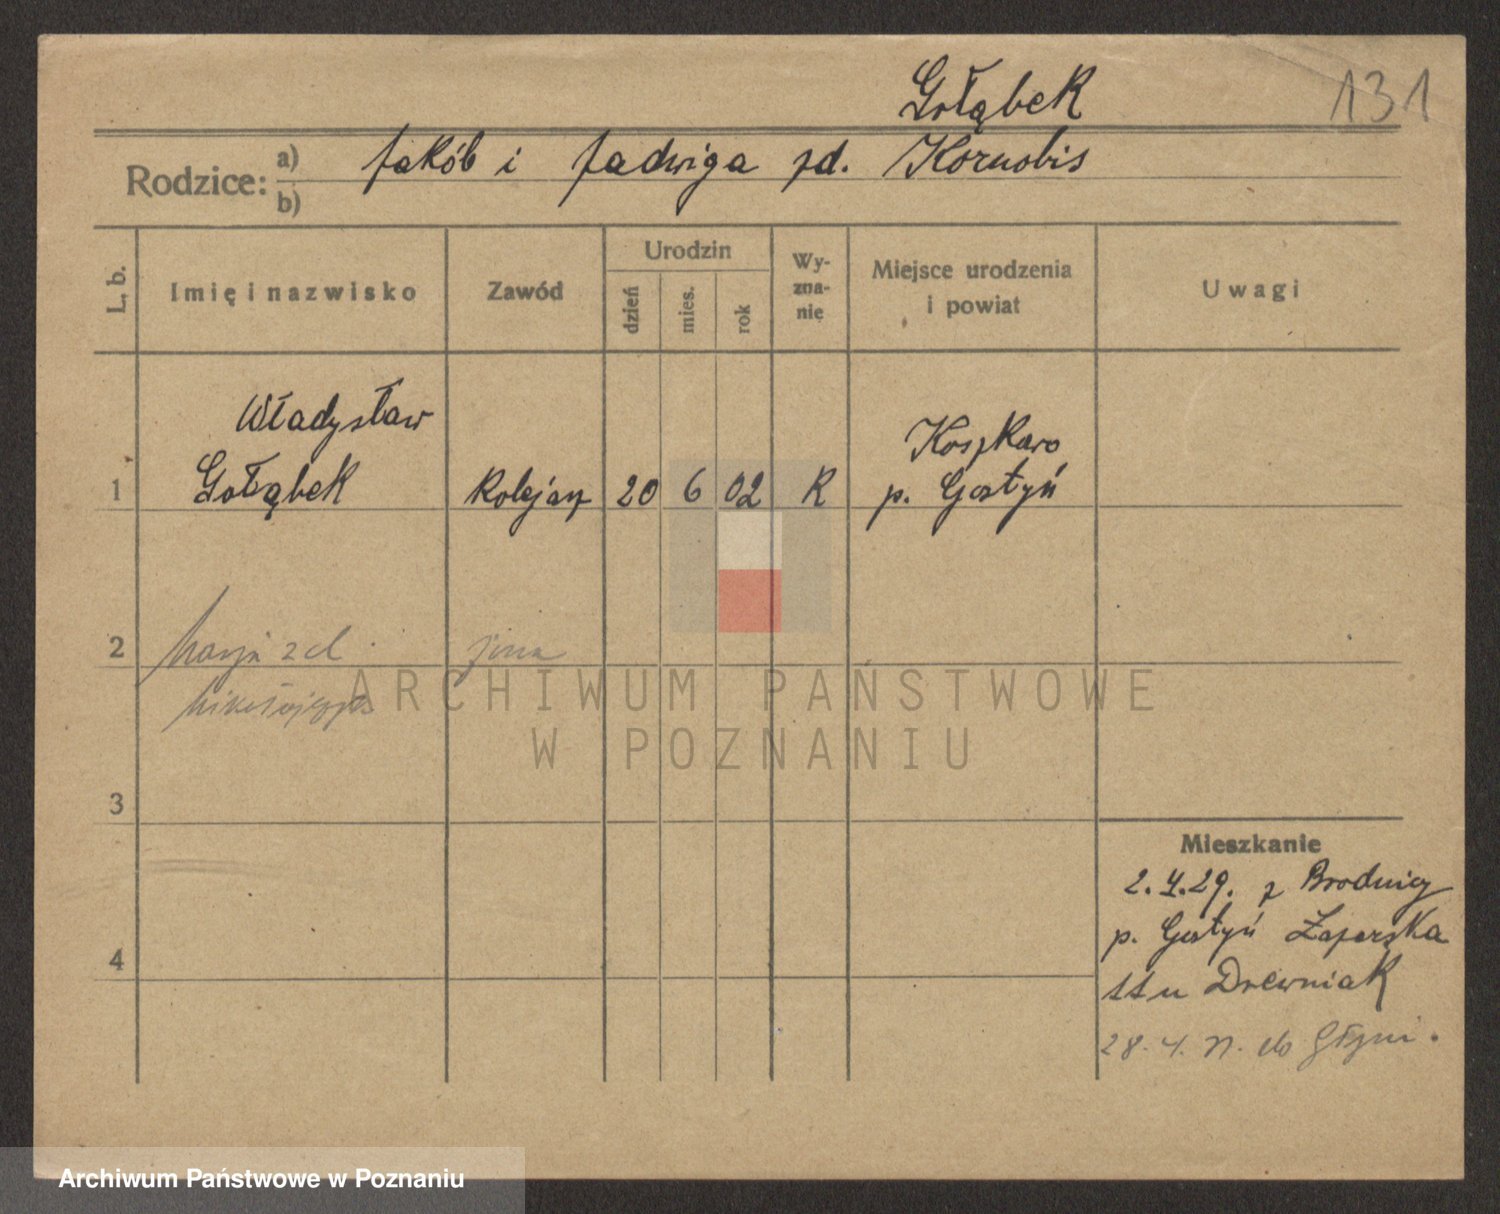 Gołąbek
131
Rodzice: a) Jakób i Jadwiga zd. Kornobis
b)
L. b.
Imię i nazwisko
Zawód
Urodzin
dzień
mies.
rok
Wy-
zna-
nie
Miejsce urodzenia
i powiat
Uwagi
Władysław
Koszkowo
1 Gołąbek kolejarz 20 6 02 R p. Gostyń
2 Marja zd. żona
ARCHIWUM PAŃSTWOWE
W POZNANIU
3
Mieszkanie
2.4.29. z Brodnicy
p. Gostyń
4
11 u Drewniak
28.4. do
Archiwum Państwowe w Poznaniu